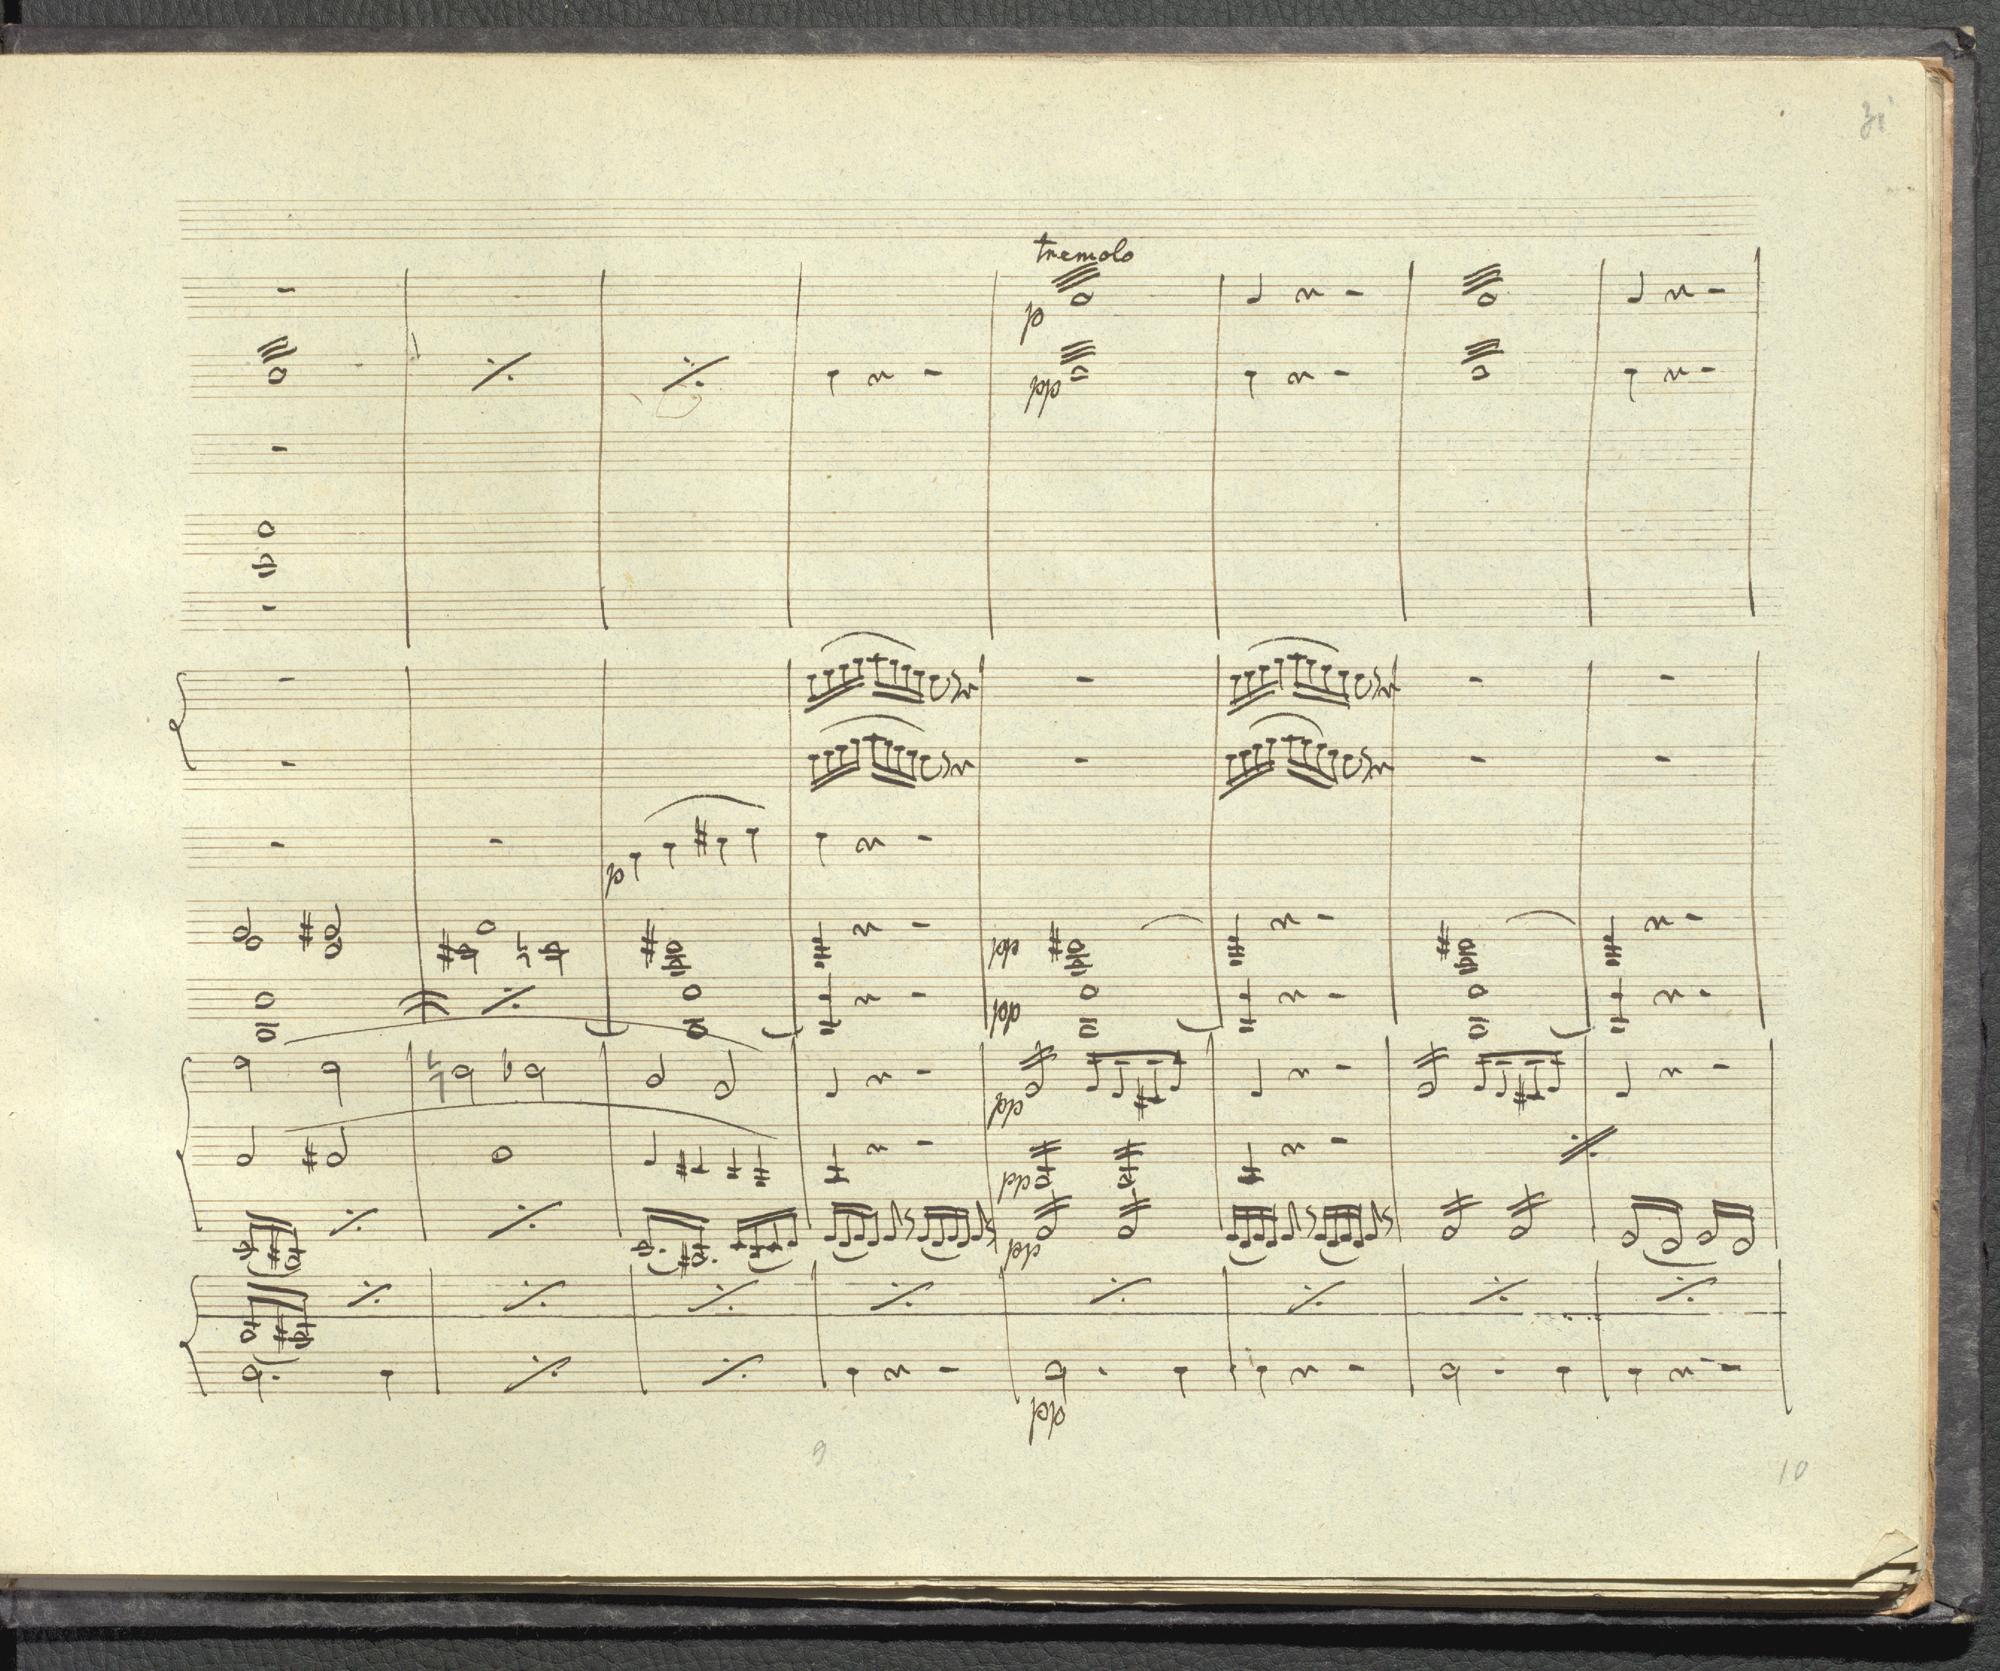 31
tremolo
p
pp
p
pp
pp
pp
ppp
pp
pp
9
10